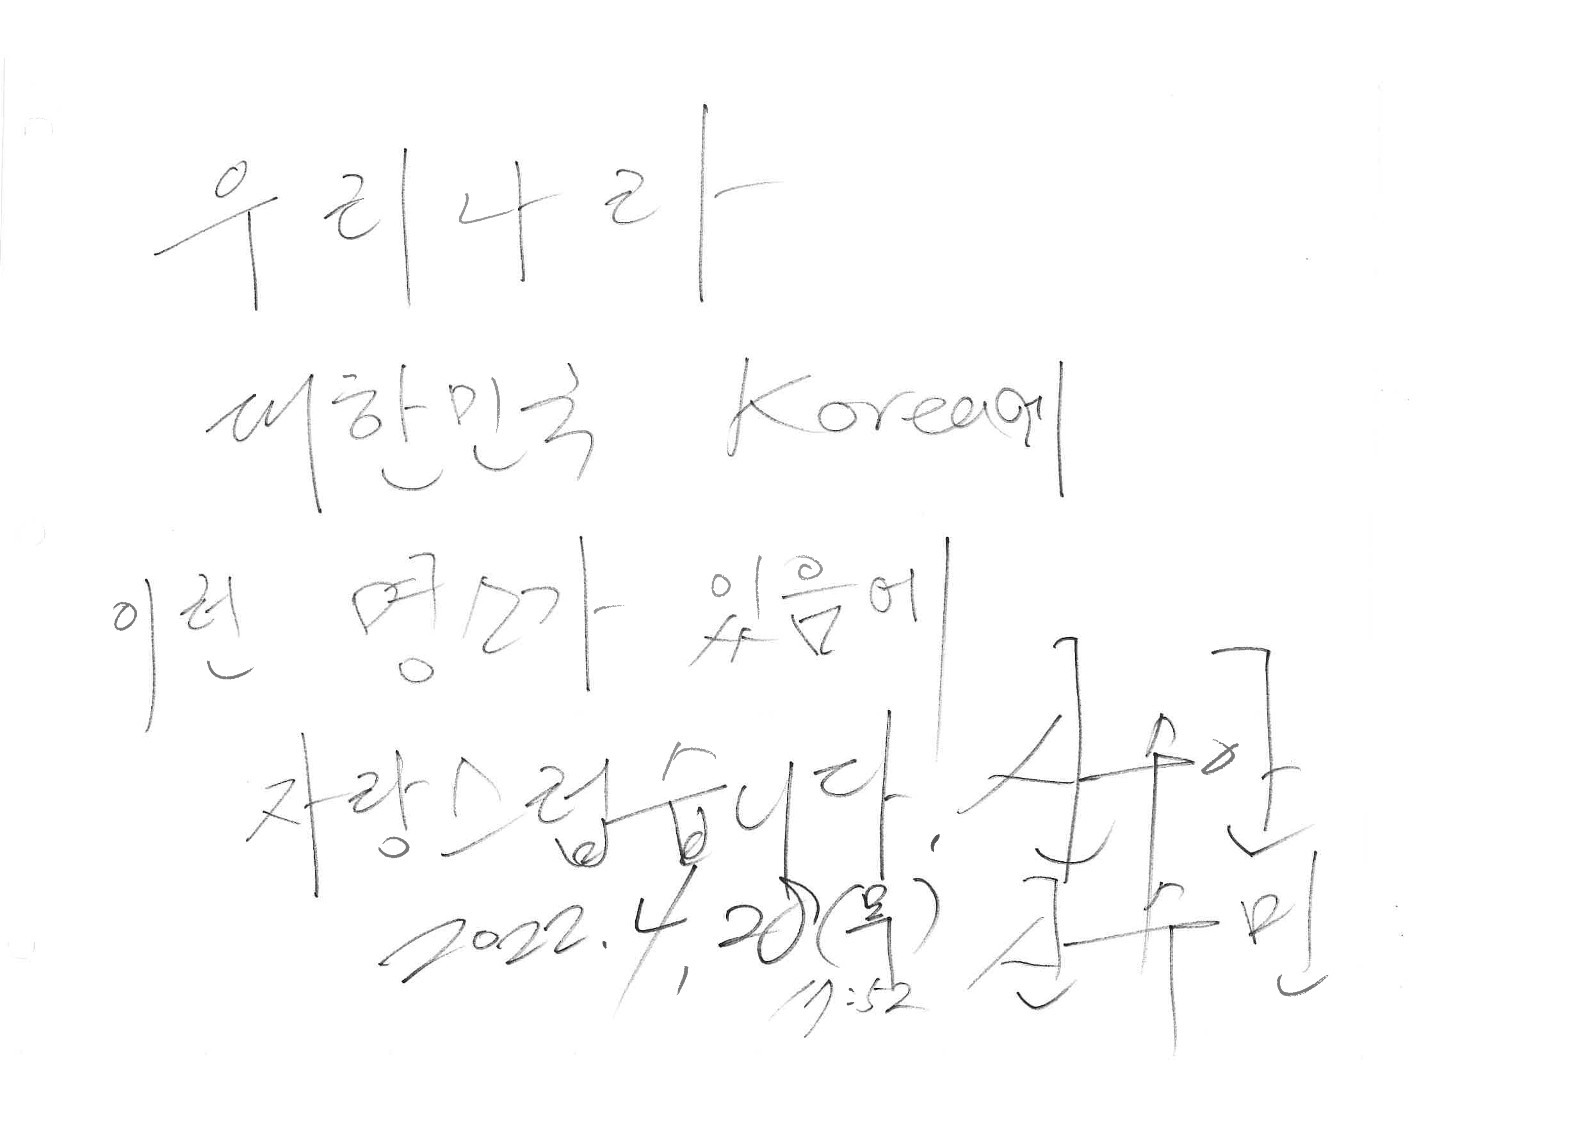 우리나라
대한민국 Korea에
이런 명소가 있음에
자랑스럽습니다.
2022. 4, 20 (목)
17:52
신수민